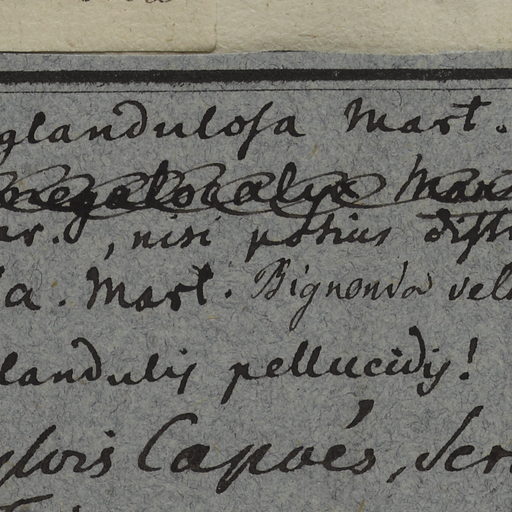 glandulosa Mart.
megalocalyx Mart
ar., nisi potius dist
a. Mart. Bignonia vel
landulis pellucidis!
ylvis Capoés, Ser